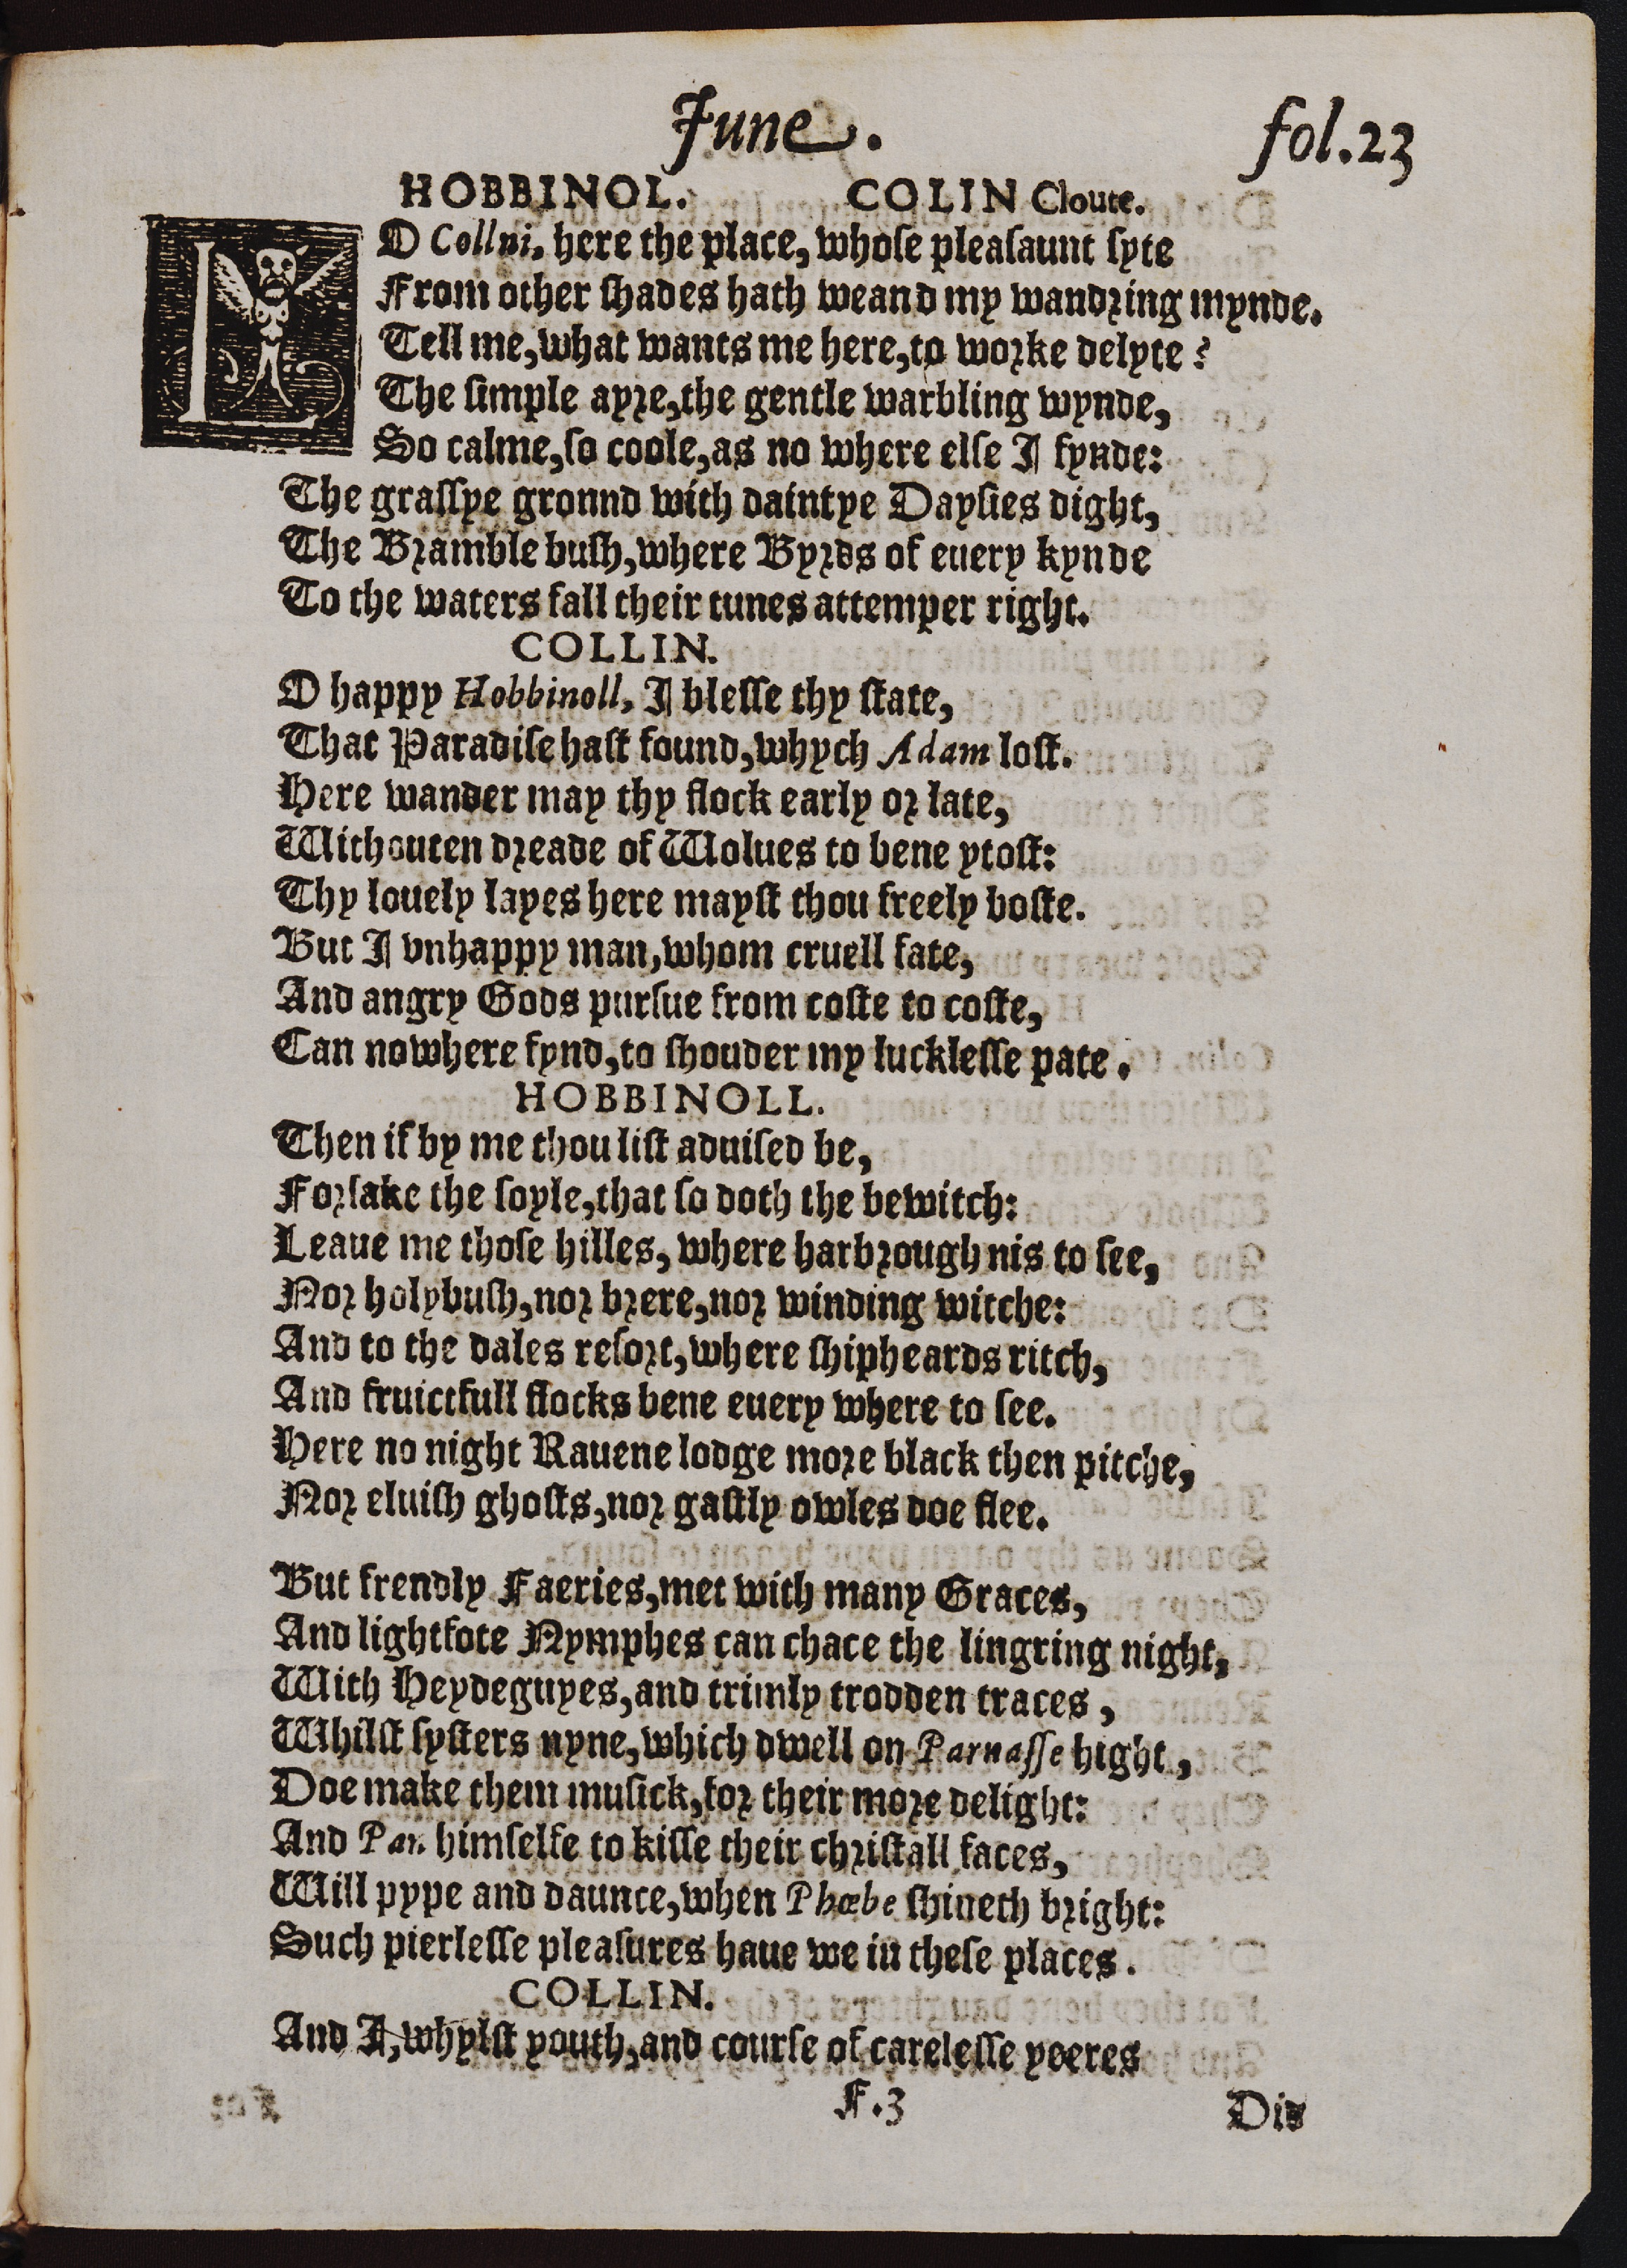 June.
fol.23
HOBBINOL. COLIN Cloute.
LO Collni, here the place, whoſe pleaſaunt ſyte
From other ſhades hath weand my wandꝛing mynde.
Tell me, what wants me here, to woꝛke delyte?
The ſimple ayꝛe, the gentle warbling wynde,
So calme, ſo coole, as no where elſe I fynde:
The graſſye gronnd with daintye Dayſies dight,
The Bꝛamble buſh, where Byꝛds of euery kynde
To the waters fall their tunes attemper right.
COLLIN.
O happy Hobbinoll, I bleſſe thy ſtate,
That Paradiſe haſt found, whych Adam loſt.
Here wander may thy flock early oꝛ late,
Withouten dꝛeade of Wolues to bene ytoſt:
Thy louely layes here mayſt thou freely boſte.
But I vnhappy man, whom cruell fate,
And angry Gods purſue from coſte to coſte,
Can nowhere fynd, to ſhouder my luckleſſe pate.
HOBBINOLL.
Then if by me thou liſt aduiſed be,
Foꝛſake the ſoyle, that ſo doth the bewitch:
Leaue me thoſe hilles, where harbꝛough nis to ſee,
Noꝛ holybuſh, noꝛ bꝛere, noꝛ winding witche:
And to the dales reſoꝛt, where ſhipheards ritch,
And fruictfull flocks bene euery where to ſee.
Here no night Rauene lodge moꝛe black then pitche,
Noꝛ eluiſh ghoſts, noꝛ gaſtly owles doe flee.
But frendly Faeries, met with many Graces,
And lightfote Nymphes can chace the lingring night,
With Heydeguyes, and trimly trodden traces,
Whilſt ſyſters nyne, which dwell on Parnaſſe hight,
Doe make them muſick, foꝛ their moꝛe delight:
And Pan himſelfe to kiſſe their chꝛiſtall faces,
Will pype and daunce, when Phœbe ſhineth bꝛight:
Such pierleſſe pleaſures haue we in theſe places.
COLLIN.
And I, whylſt youth, and courſe of careleſſe yeeres
F.3
Did